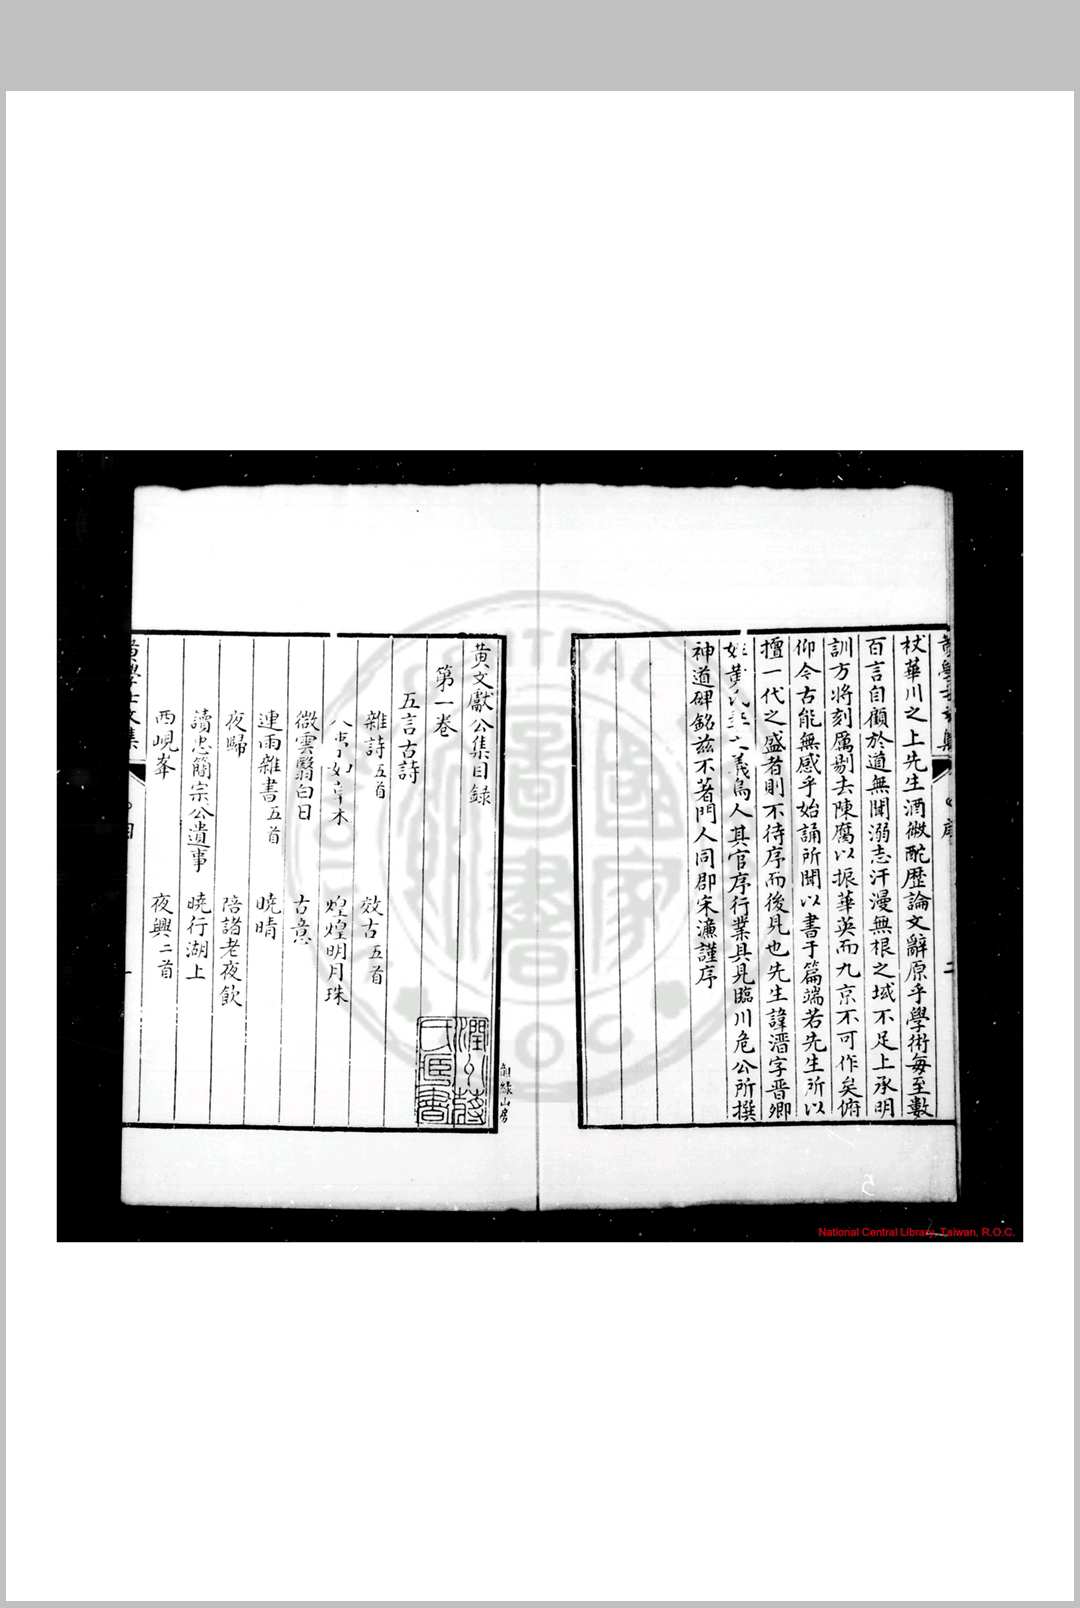 杖華川之上先生酒微酡歷論文辭原乎學術每至數
百言自顧於道無聞溺志汗漫無根之域不足上承明
訓方將刻厲剔去陳腐以振華英而九京不可作矣俯
仰今古能無感乎始誦所聞以書于篇端若先生所以
擅一代之盛者則不待序而後見也先生諱溍字晉卿
姓黃氏義烏人其官序行業具見臨川危公所撰
神道碑銘茲不著門人同郡宋濂謹序
黃文獻公集目錄
第一卷
五言古詩
雜詩五首 效古五首
煌煌明月珠
微雲翳白日 古意
連雨雜書五首 曉晴
夜歸 陪諸老夜飲
讀忠簡宗公遺事 曉行湖上
西峴峯 夜興二首
National Central Library, Taiwan, R.O.C.